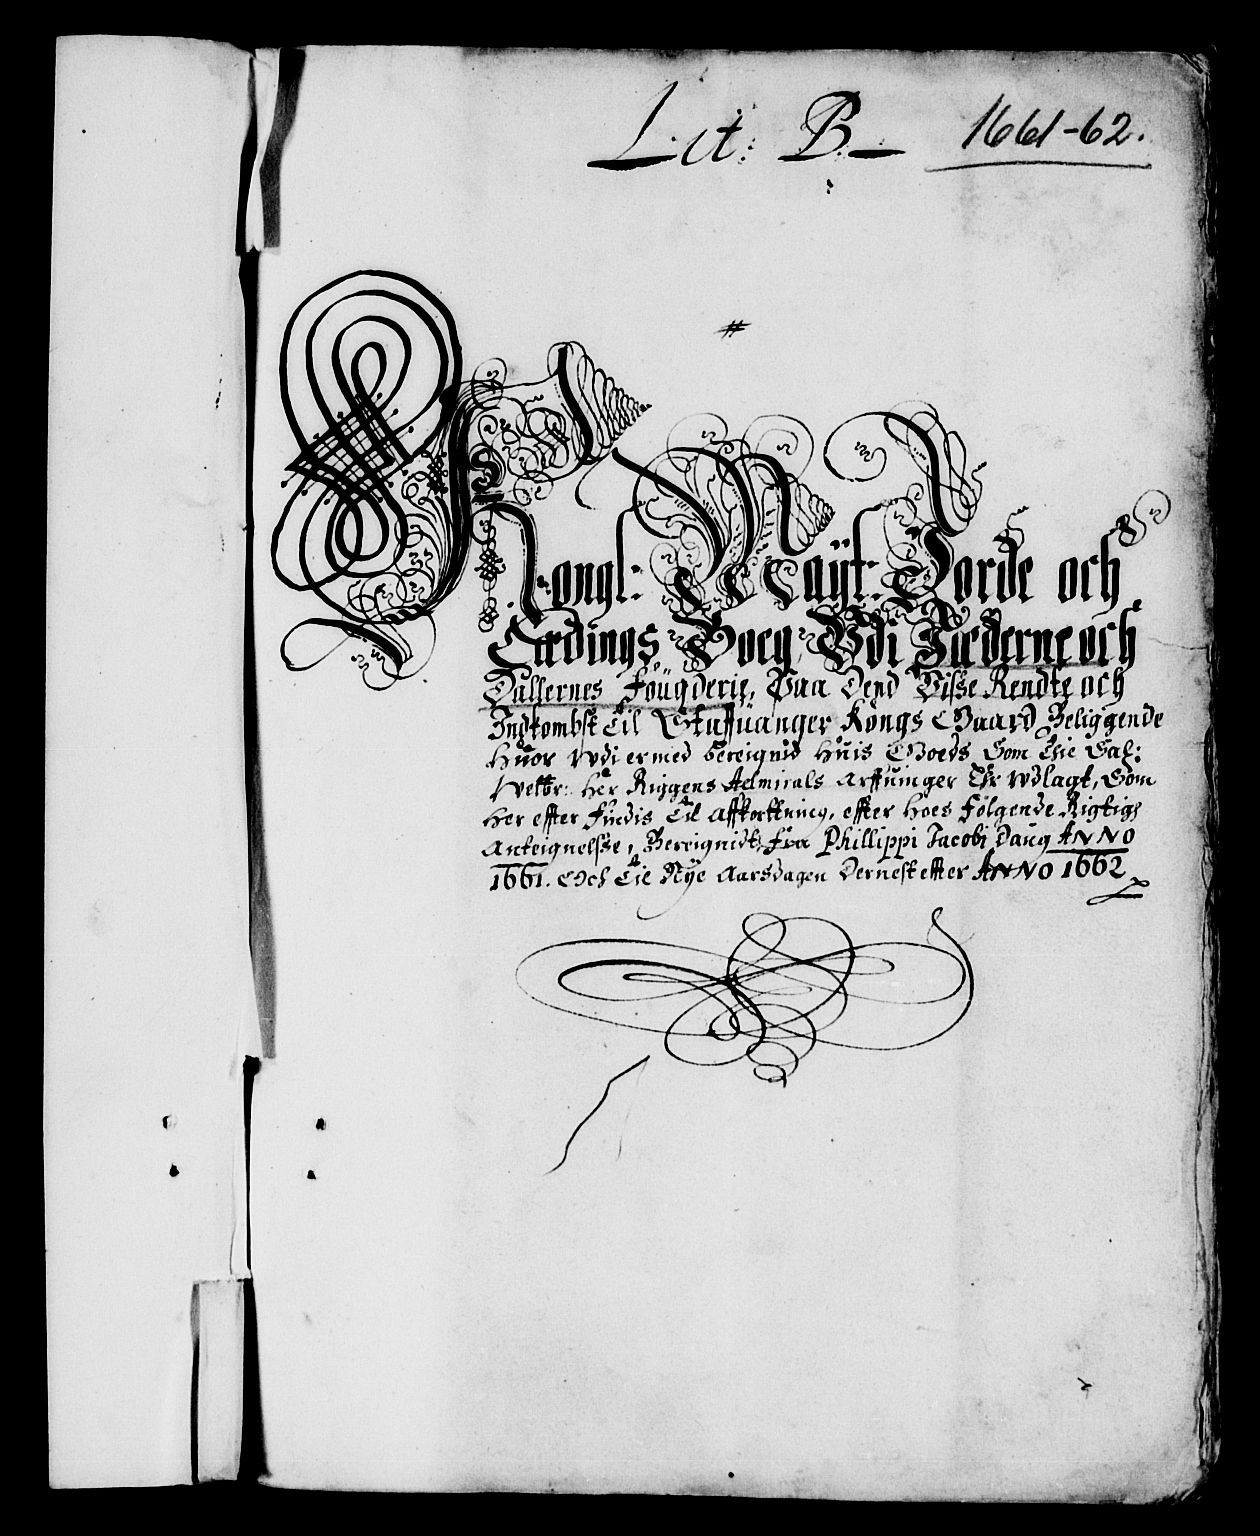 Lit: B.
1661-62.
#
Kongl: Maÿt: Jorde och
Tædings Boeg Vdi Jæderne och
Dallernes Fougderie, Paa Dend Visse Rendte och
Indkombst til Staffuanger Kongs Gaard Beliggende
Huor vdi er med bereignid Huis Goeds Som Thie Sal:
Welbr: Her Riggens Admirals Arffuinger Er vdlagt, Som
Her effter Findis til Affkorttning, effter hoes Følgende Rigtigh
Anteignelsse, Bereignidt, fra Phillippi Jacobi Daug ANNO
1661. Och til Nÿe Aarsdagen Dernest effter ANNO 1662